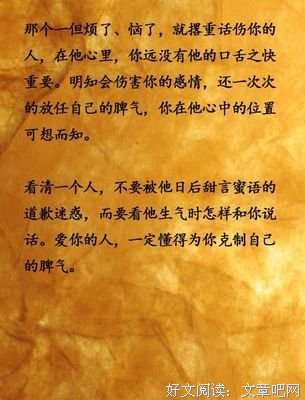 那个一但烦了、恼了，就撂重话伤你的
人，在他心里，你远没有他的口舌之快
重要。明知会伤害你的感情，还一次次
的放任自己的脾气，你在他心中的位置
可想而知。
看清一个人，不要被他日后甜言蜜语的
道歉迷惑，而要看他生气时怎样和你说
话。爱你的人，一定懂得为你克制自己
的脾气。
好文阅读：文章吧网